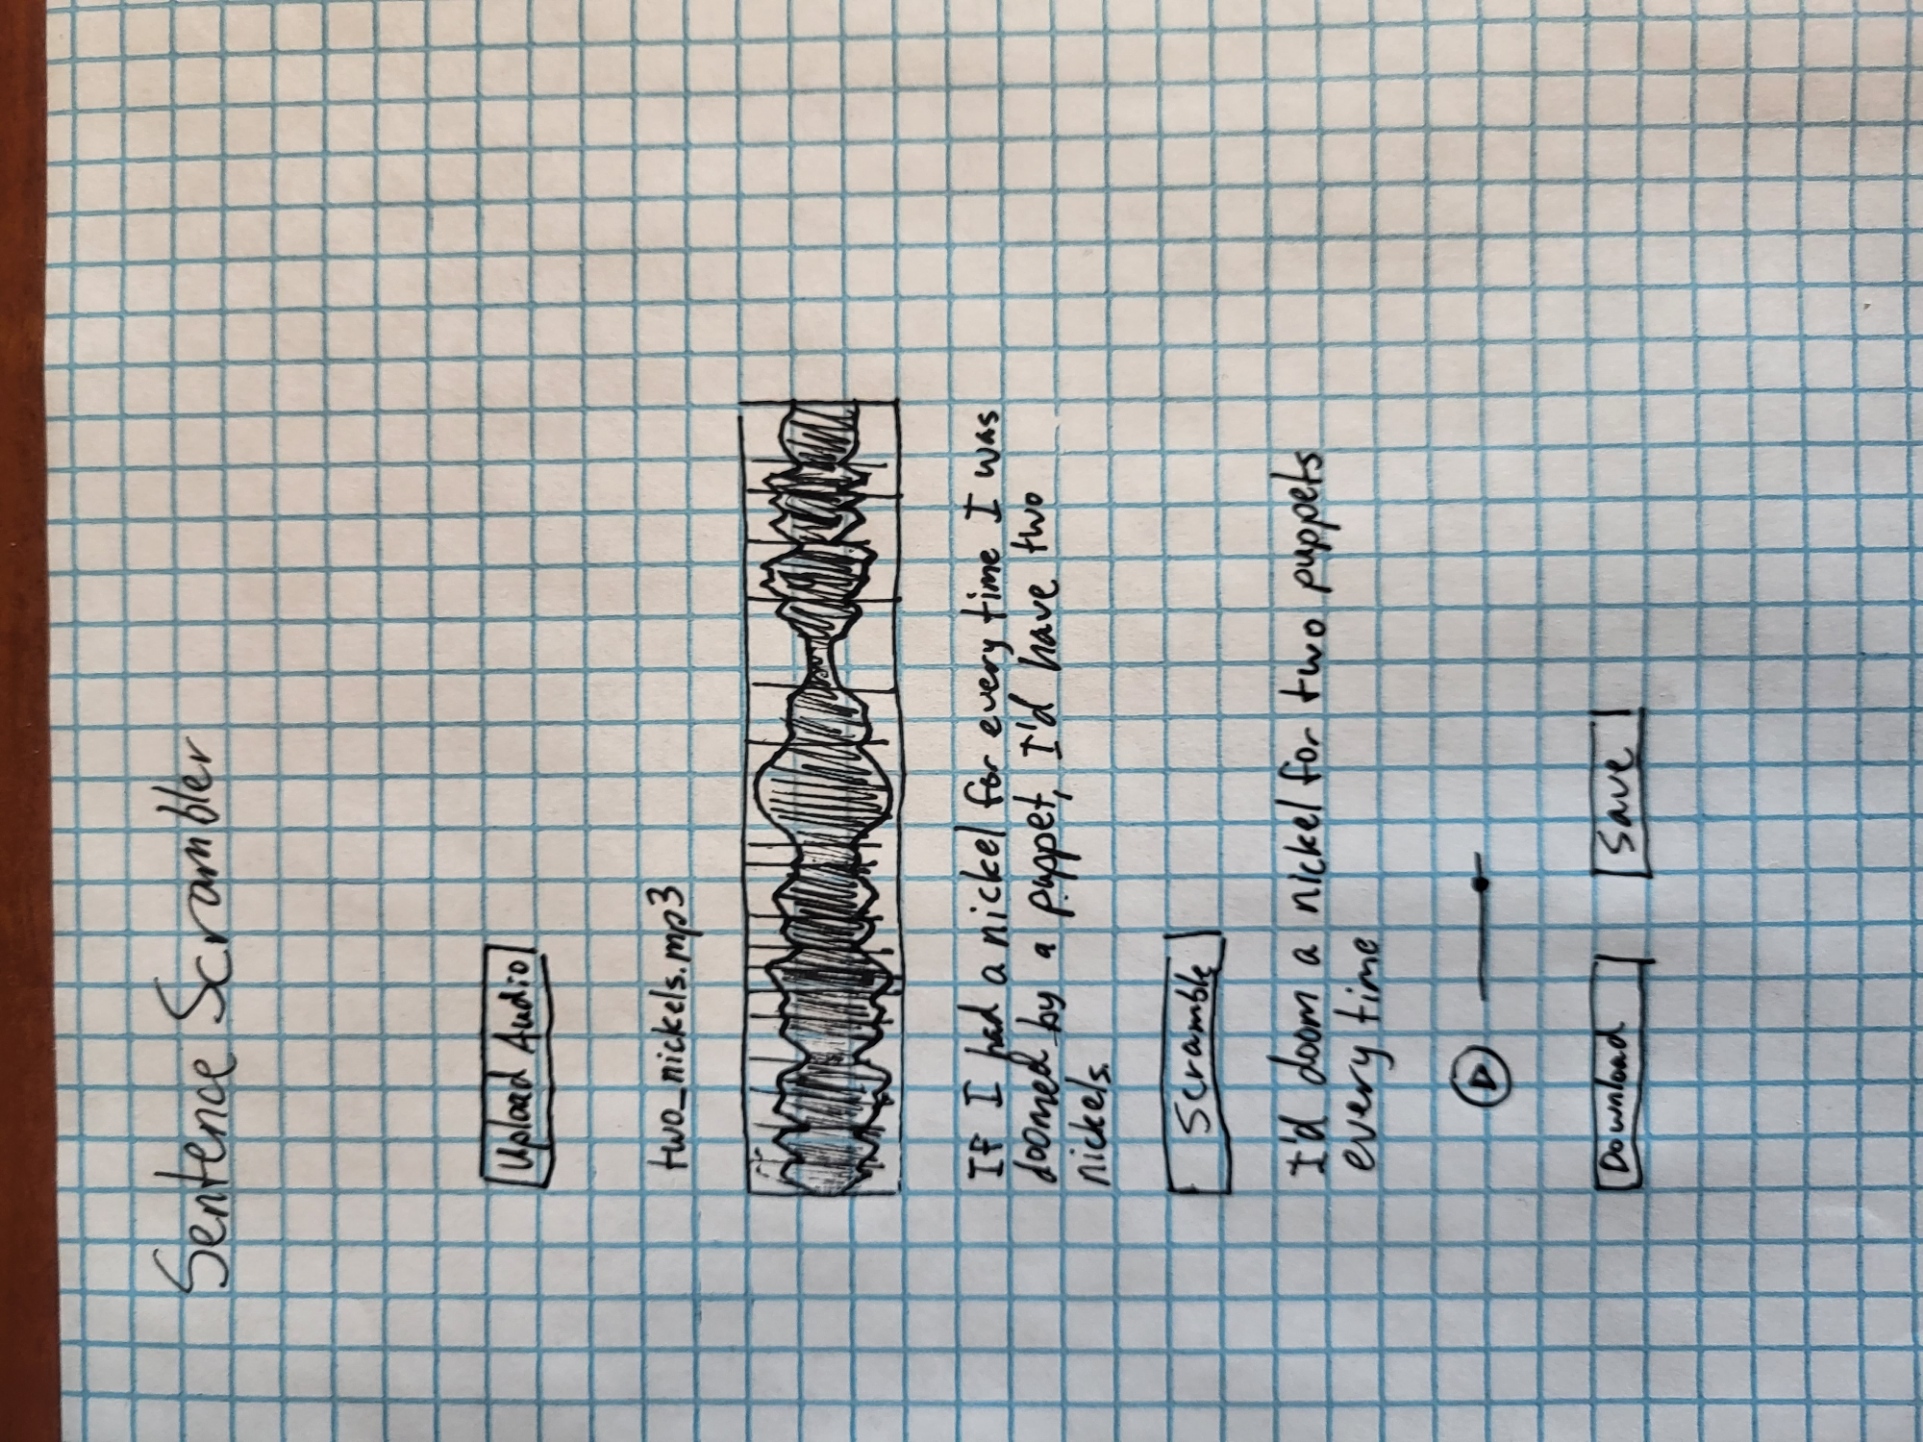 Sentence Scrambler
Upload Audio
two_nickels.mp3
If I had a nickel for every time I was
doomed by a puppet, I'd have two
nickels.
Scramble
I'd doom a nickel for two puppets
every time
Download Save